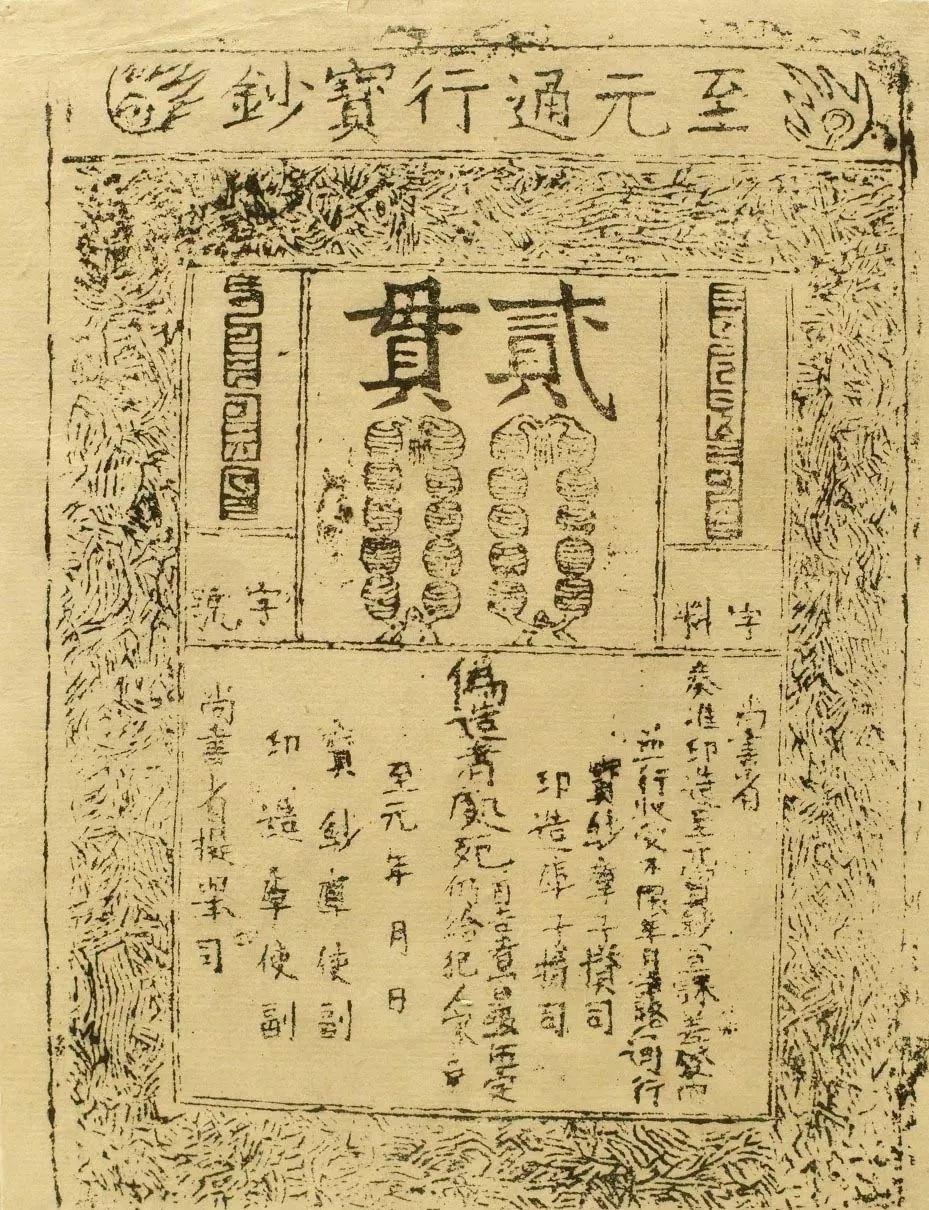 至元通行寶鈔
貳貫
字料
字號
尚書省
奏准印造至元寶鈔宣課差役內
並行收受不限年月諸路通行
寶鈔庫子攢司
印造庫子攢司
偽造者處死
仍給犯人家產
至元年月日
寶鈔庫使副
印造庫使副
尚書省提舉司